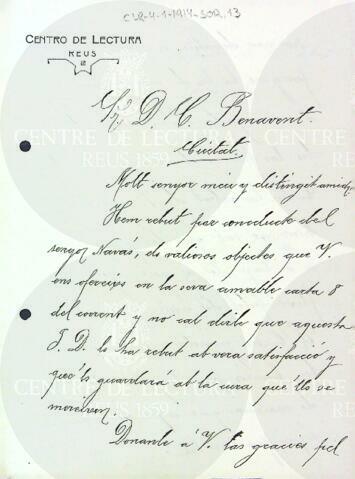 CLR-4-1-1914-SOR,13
CENTRO DE LECTURA
REUS
Sr. D. C. Benavent.
Ciutat
Molt senyor meu y distingit amich:
Hem rebut per conducte del
senyor Navás, els valiosos objectes que V.
ens ofereix en la seva amable carta 8
del corrent y no cal dirle que aquesta
J. D. ls ha rebut ab vera satisfacció y
que 'ls guardará ab la cura qu' ells se
mereixen.
Donante á V. las gracies pel
CENTRE DE LECTURA
REUS 1859